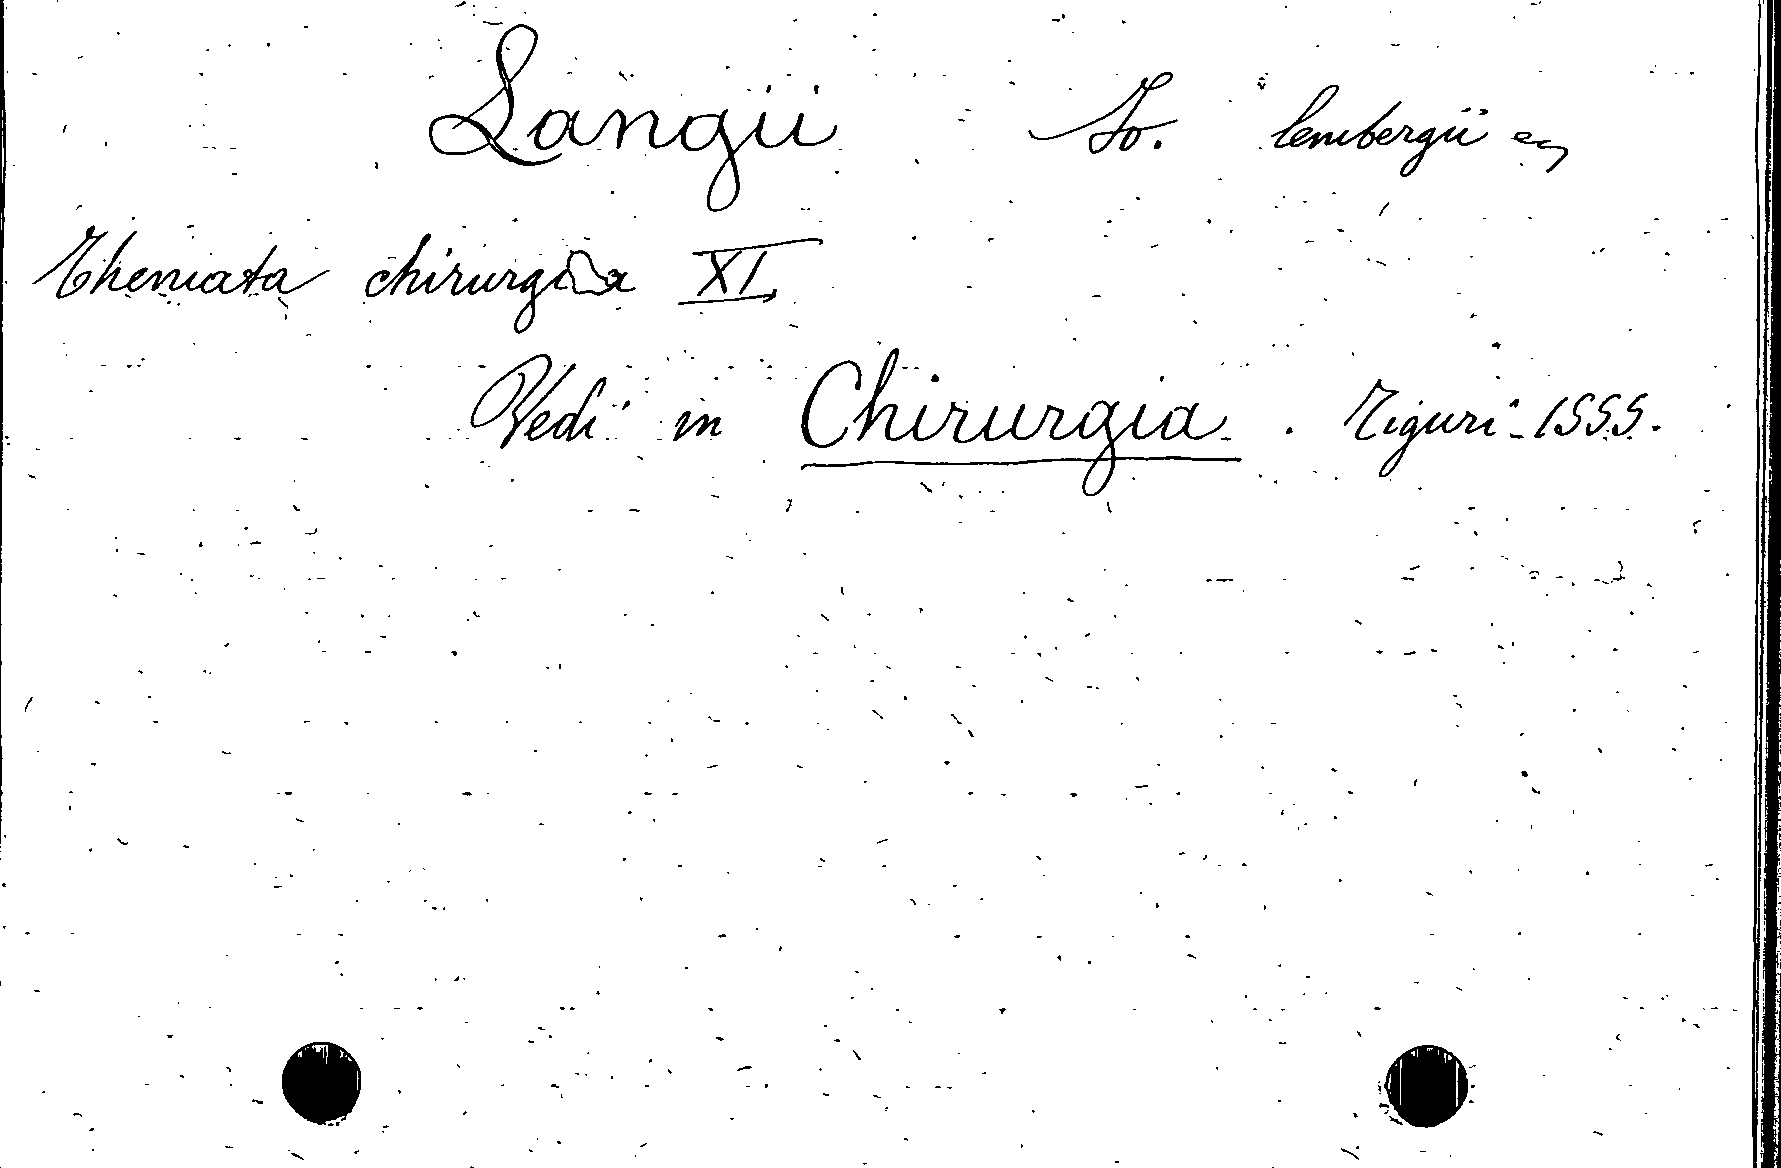 Langii Io. lembergii
Themata chirurgica XI
Vedi in Chirurgia. Tiguri-1555.